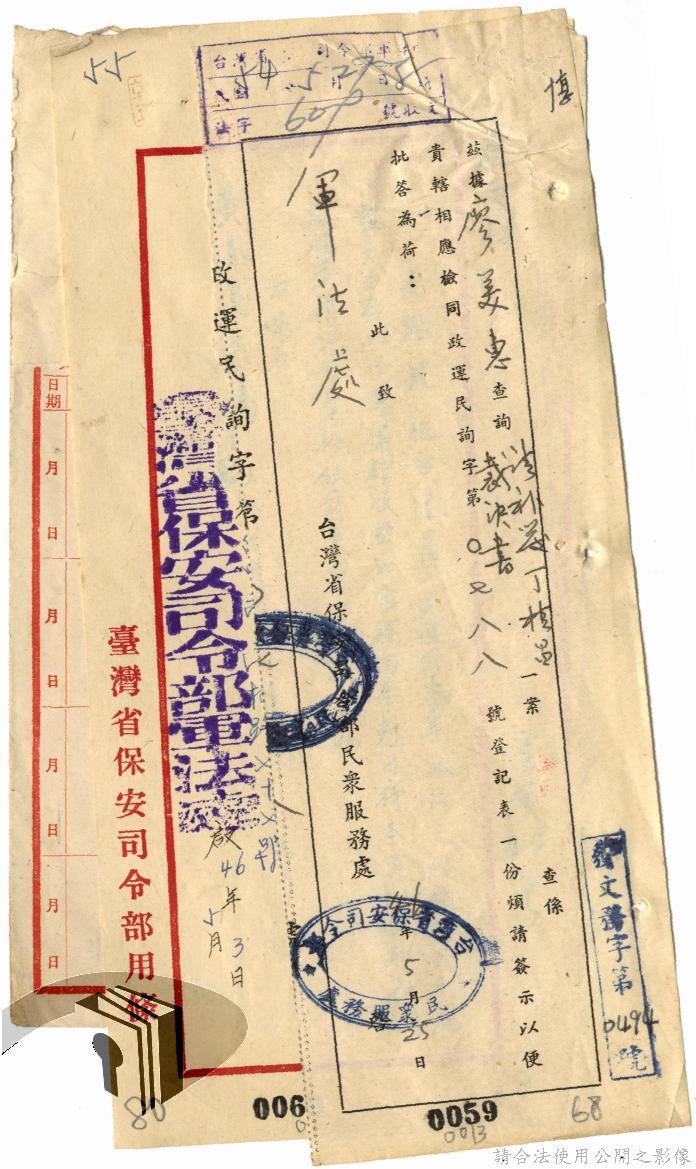 55
54 5 27
惠
茲據廖美惠查詢請補發丁楨昌裁決書一案 查係
貴轄相應檢同政運民詢字第0七八八號登記表一份煩請簽示以便
批答為荷：
此致
軍法處
台灣省保安司令部民衆服務處
年5月25日
台灣省保安司令部
民衆服務處
發文務字第0494號
政運民詢字第
台灣省保安司令部軍法處
啟46年5月3日
臺灣省保安司令部用條
日期
月 日
月 日
月 日
月 日
80
006
0059
0013
68
請合法使用公開之影像